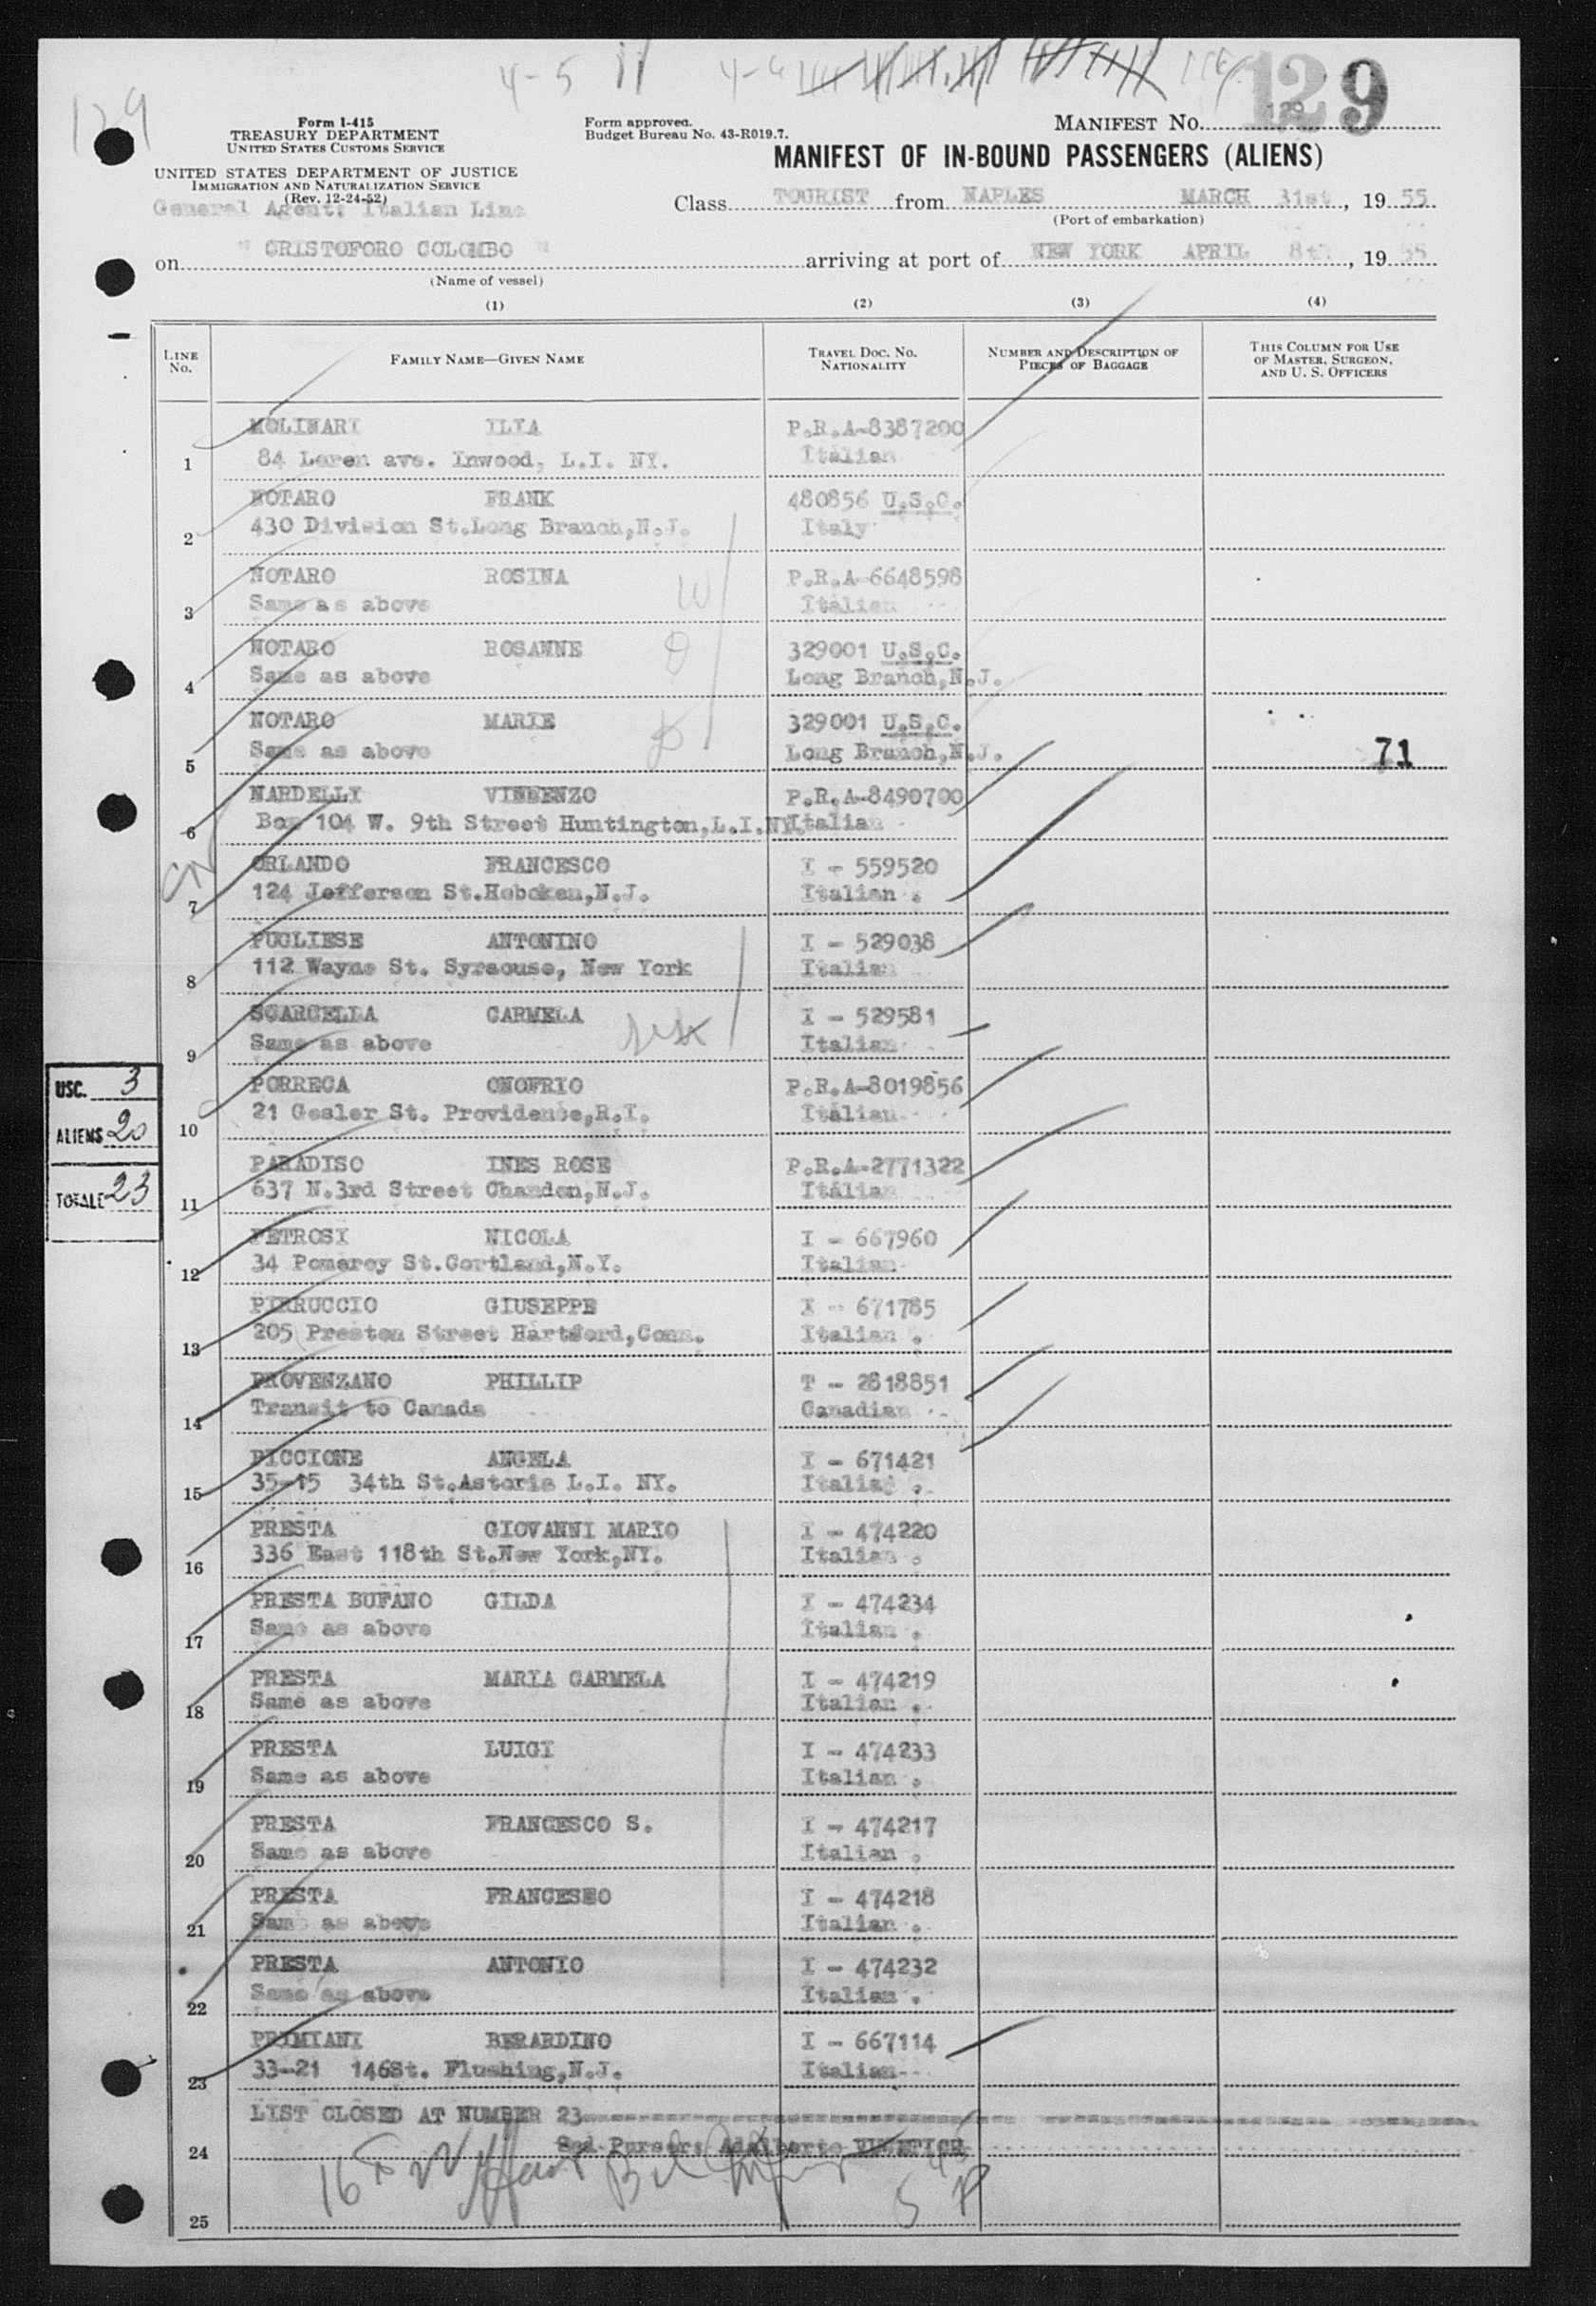 129
4-5
129
129
Form I-415
TREASURY DEPARTMENT
UNITED STATES CUSTOMS SERVICE
UNITED STATES DEPARTMENT OF JUSTICE
IMMIGRATION AND NATURALIZATION SERVICE
(Rev. 12-24-52)
General Agent: Italian Line
Form approved.
Budget Bureau No. 43-R019.7.
MANIFEST NO.
MANIFEST OF IN-BOUND PASSENGERS (ALIENS)
Class TOURIST from NAPLES MARCH 31st, 19 55
(Port of embarkation)
on " CRISTOFORO COLOMBO " arriving at port of NEW YORK APRIL 8th, 19 55
(Name of vessel)
(1) (2) (3) (4)
LINE No. FAMILY NAME—GIVEN NAME TRAVEL DOC. NO. NATIONALITY NUMBER AND DESCRIPTION OF PIECES OF BAGGAGE THIS COLUMN FOR USE OF MASTER, SURGEON, AND U. S. OFFICERS
MOLINARI ILIA P.R.A-8387200
1 84 Loren ave. Inwood, L.I. NY. Italian
NOTARO FRANK 480856 U.S.C.
2 430 Division St.Long Branch,N.J. Italy
NOTARO ROSINA P.R.A-6648598
3 Same as above Italian
NOTARO ROSANNE 329001 U.S.C.
4 Same as above Long Branch,N.J.
NOTARO MARIE 329001 U.S.C.
5 Same as above Long Branch,N.J. 71
NARDELLY VINCENZO P.R.A-8490700
6 Box 104 W. 9th Street Huntington,L.I.NY. Italian
ORLANDO FRANCESCO I - 559520
7 124 Jefferson St.Hoboken,N.J. Italian .
PUGLIESE ANTONINO I - 529038
8 112 Wayne St. Syracuse, New York Italian
SCARCELLA CARMELA I - 529581
9 Same as above Italian
PORRECA ONOFRIO P.R.A-8019856
10 21 Gesler St. Providense,R.I. Italian
PARADISO INES ROSE P.R.A-2771322
11 637 N.3rd Street Chamden,N.J. Italian
PETROSI NICOLA I - 667960
12 34 Pomeroy St.Cortland,N.Y. Italian
PIRRUCCIO GIUSEPPE I - 671785
13 205 Preston Street Hartford,Conn. Italian .
PROVENZANO PHILLIP T - 2818851
14 Transit to Canada Canadian
PICCIONE ANGELA I - 671421
15 35-15 34th St.Astoria L.I. NY. Italian .
PRESTA GIOVANNI MARIO I - 474220
16 336 East 118th St.New York,NY. Italian .
PRESTA BUFANO GILDA I - 474234
17 Same as above Italian .
PRESTA MARIA CARMELA I - 474219
18 Same as above Italian .
PRESTA LUIGI I - 474233
19 Same as above Italian .
PRESTA FRANCESCO S. I - 474217
20 Same as above Italian .
PRESTA FRANCESCO I - 474218
21 Same as above Italian .
PRESTA ANTONIO I - 474232
22 Same as above Italian .
PRIMIANI BERARDINO I - 667114
23 33-21 146St. Flushing,N.J. Italian
LIST CLOSED AT NUMBER 23
24
25
USC. 3
ALIENS 20
TOTALE 23